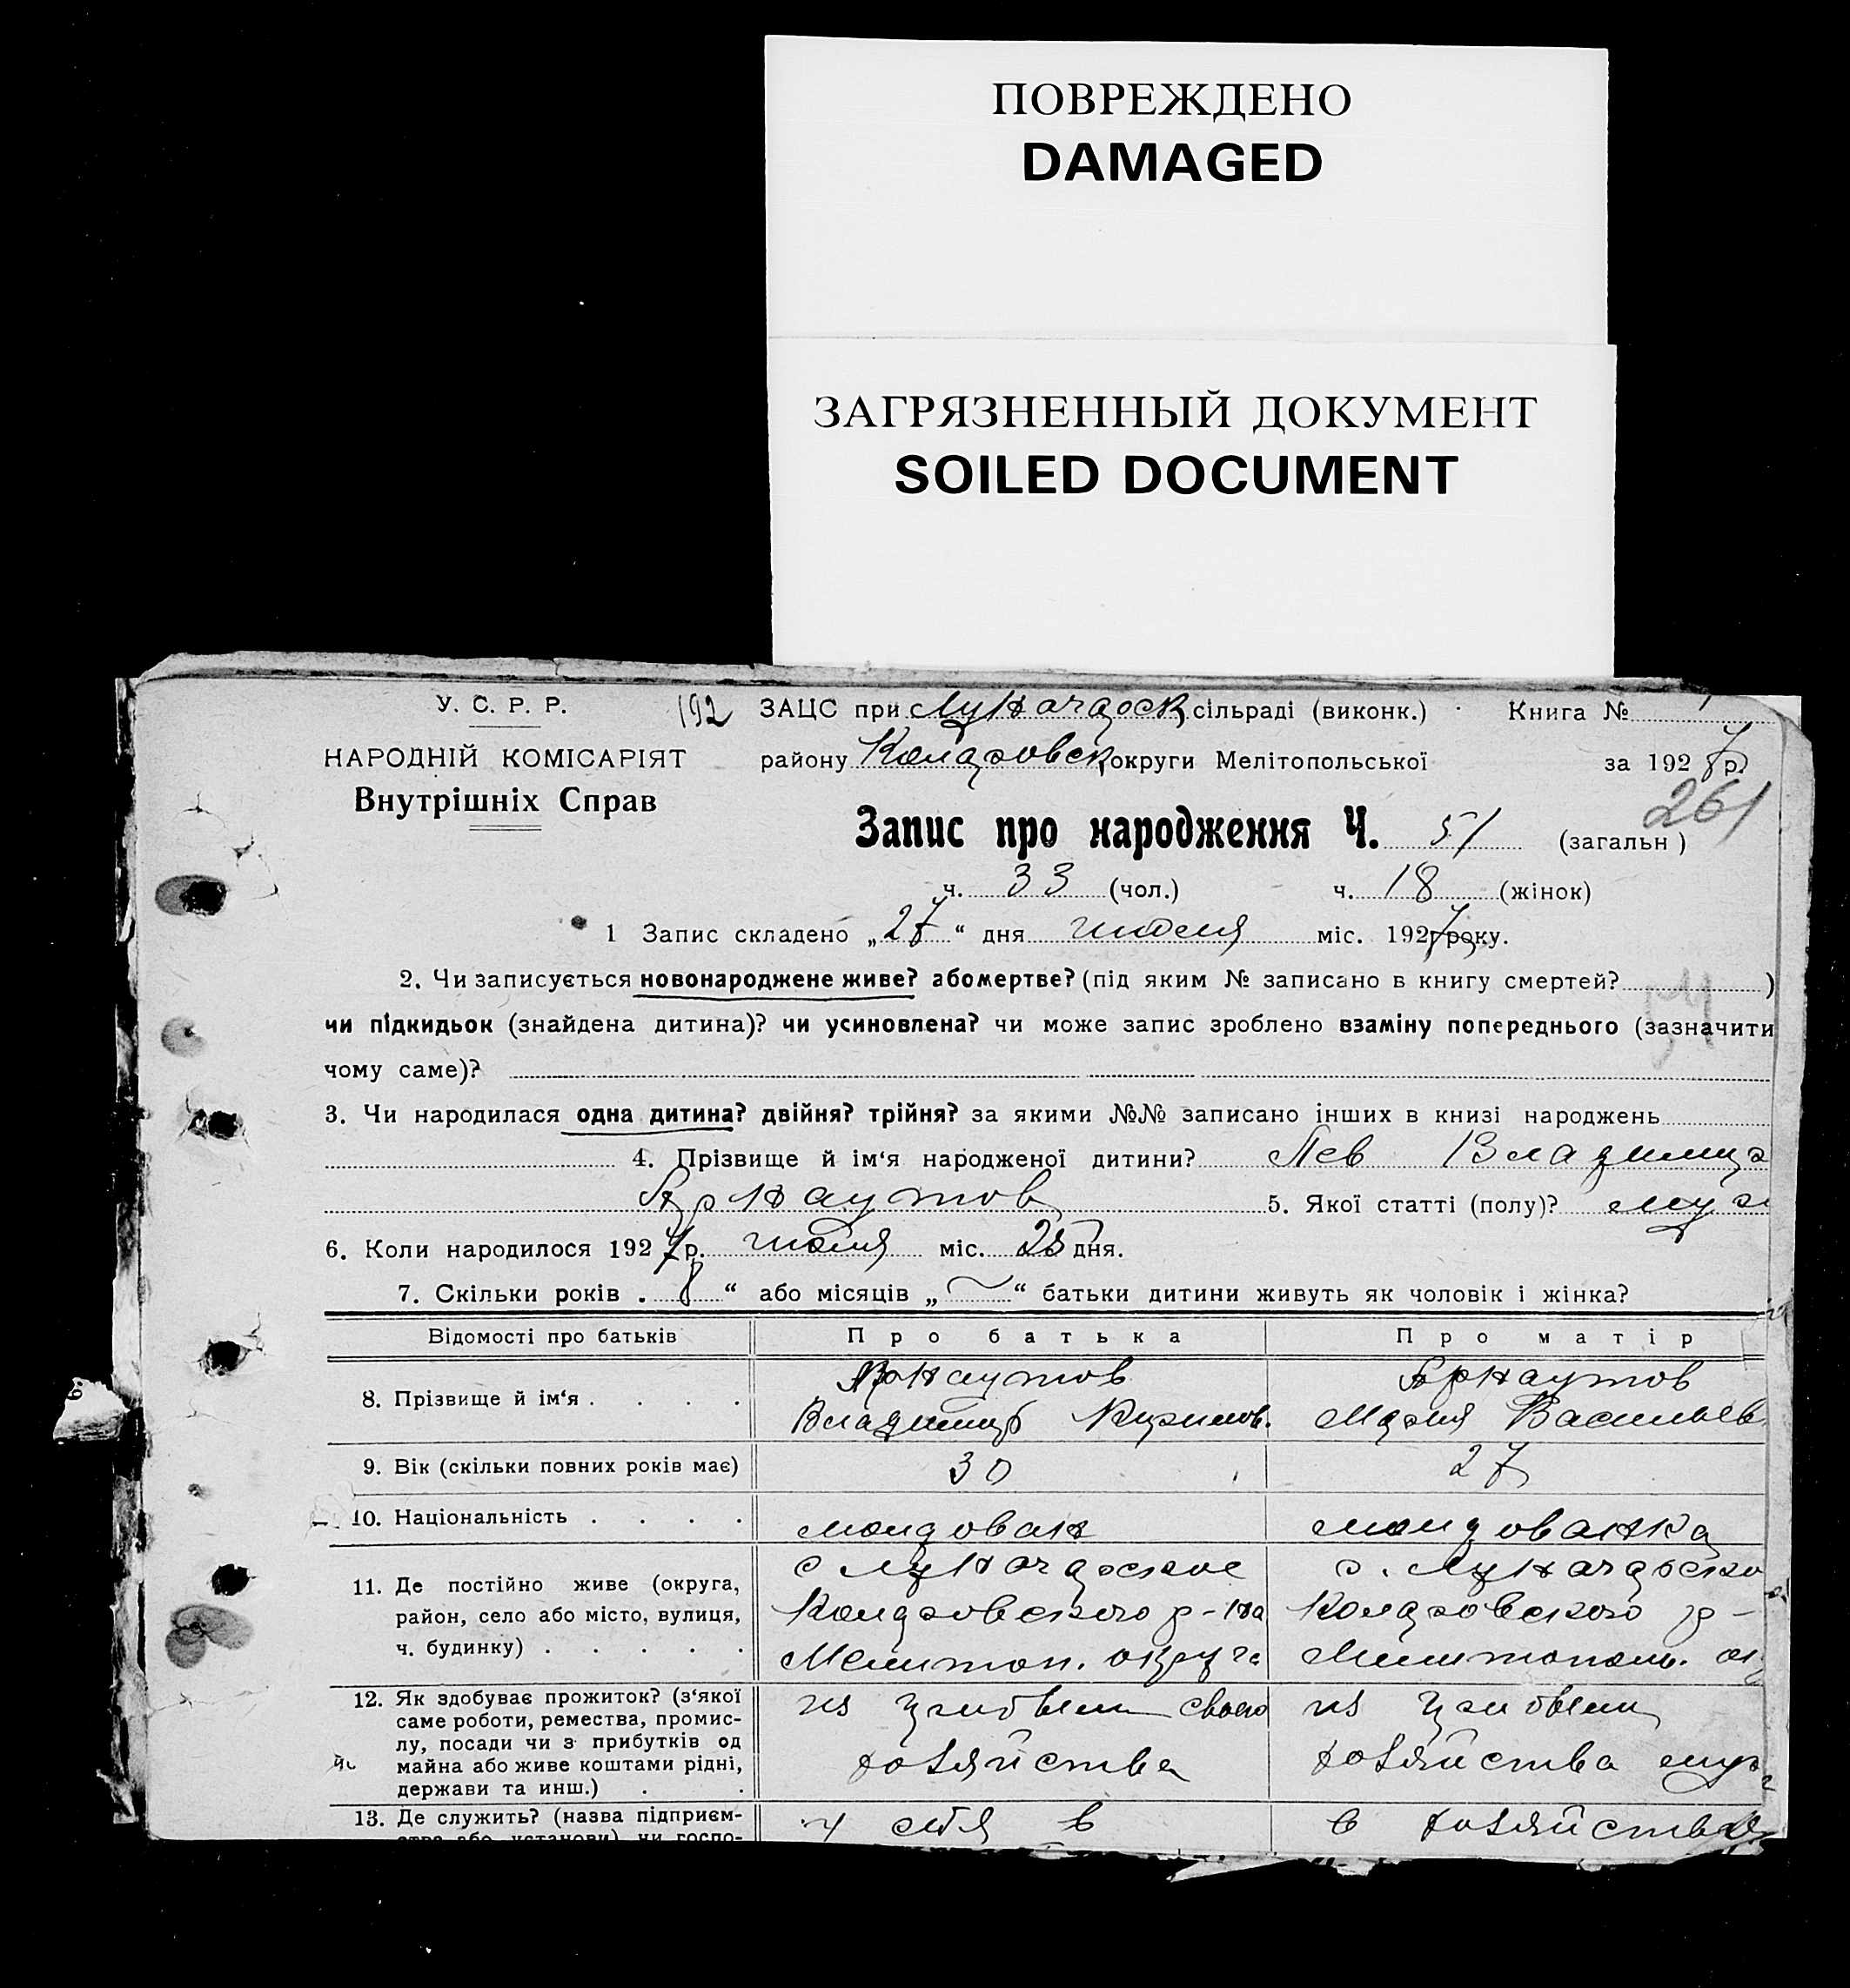 ПОВРЕЖДЕНО
DAMAGED
ЗАГРЯЗНЕННЫЙ ДОКУМЕНТ
SOILED DOCUMENT
У. С. Р. Р. 192 ЗАЦС при сільраді (виконк.) Книга № 1
НАРОДНІЙ КОМІСАРІЯТ району округи Мелітопольської за 1927 р.
Внутрішніх Справ 261
Запис про народження Ч. 51 (загальн )
ч. 33 (чол.) ч. 18 (жінок)
1 Запис складено „27“ дня июля міс. 1927 року.
2. Чи записується новонароджене живе? або мертве? (під яким № записано в книгу смертей? )
чи підкидьок (знайдена дитина)? чи усиновлена? чи може запис зроблено взаміну попереднього (зазначити
чому саме)?
3. Чи народилася одна дитина? двійня? трійня? за якими №№ записано інших в книзі народжень
4. Прізвище й ім‘я народженої дитини? Лев Владимир
Арнаутов 5. Якої статті (полу)? муж
6. Коли народилося 1927 р. июля міс. 25 дня.
7. Скільки років . 8 “ або місяців „ — “ батьки дитини живуть як чоловік і жінка?
Відомості про батьків Про батька Про матір
8. Прізвище й ім‘я . . . . Арнаутов Арнаутов
Владимир Кирилов. Мария Васильев
9. Вік (скільки повних років має) 30 27
10. Національність . . . . молдован молдованка
11. Де постійно живе (округа,
район, село або місто, вулиця, р-на р-
ч. будинку) . . . . . Мелитоп. округа Мелитополь. ок
12. Як здобуває прожиток? (з‘якої из прибыли своего из прибыли
саме роботи, ремества, промис-
лу, посади чи з прибутків од
майна або живе коштами рідні, хозяйства хозяйства муж
держави та инш.) . .
13. Де служить? (назва підприєм- у себя в в хозяйстве
ства або установи) чи госпо-